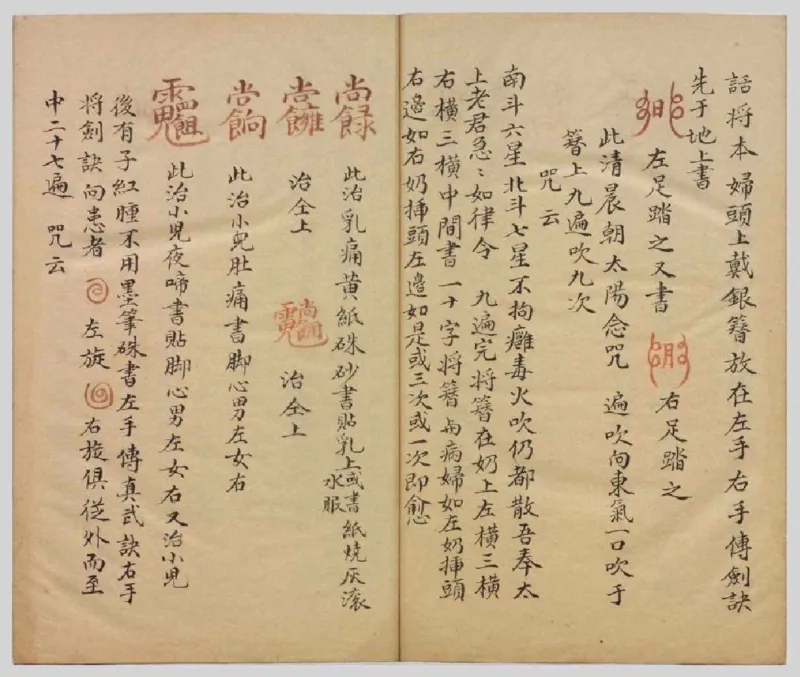 話將本婦頭上戴銀簪放在左手右手傳劍訣
先于地上書
左足踏之又書 右足踏之
此清晨朝太陽念咒 遍吹向東氣一口吹于
簪上九遍吹九次
咒云
南斗六星北斗七星不拘癰毒火吹仍都散吾奉太
上老君急〻如律令 九遍完將簪在奶上左橫三橫
右橫三橫中間書一十字將簪与病婦如左奶揷頭
右邊如右奶揷頭左邊如是或三次或一次即愈
此治乳痛黃紙硃砂書貼乳上或書紙燒灰滾
水服
治仝上 治仝上
此治小兒肚痛書脚心男左女右
此治小兒夜啼書貼脚心男左女右又治小兒
後有子紅腫不用墨筆硃書左手傳真武訣右手
將劍訣向患者 左旋 右旋俱從外而至
中二十七遍 咒云